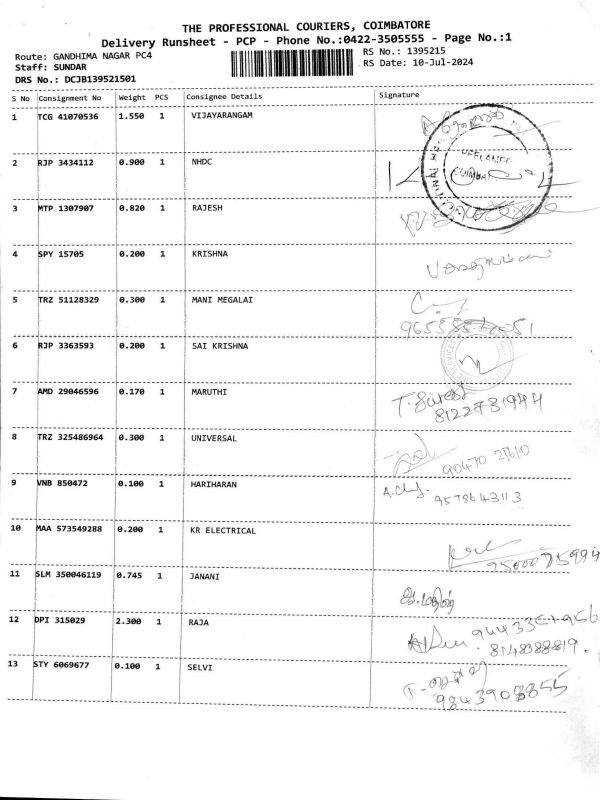 THE PROFESSIONAL COURIERS, COIMBATORE
Delivery Runsheet - PCP - Phone No.:0422-3505555 - Page No.:1
Route: GANDHIMA NAGAR PC4
RS No.: 1395215
Staff: SUNDAR
RS Date: 10-Jul-2024
DRS No.: DCJB139521501
S No Consignment No Weight PCS Consignee Details Signature
1 TCG 41070536 1.550 1 VIJAYARANGAM
2 RJP 3434112 0.900 1 NHDC
3 MTP 1307907 0.820 1 RAJESH
4 SPY 15705 0.200 1 KRISHNA
5 TRZ 51128329 0.300 1 MANI MEGALAI
6 RJP 3363593 0.200 1 SAI KRISHNA
7 AMD 29046596 0.170 1 MARUTHI
T. Suresh
8122731944
8 TRZ 325486964 0.300 1 UNIVERSAL
9 VNB 850472 0.100 1 HARIHARAN
9578643113
10 MAA 573549288 0.200 1 KR ELECTRICAL
11 SLM 350046119 0.745 1 JANANI
12 DPI 315029 2.300 1 RAJA
8148388819.
13 STY 6069677 0.100 1 SELVI